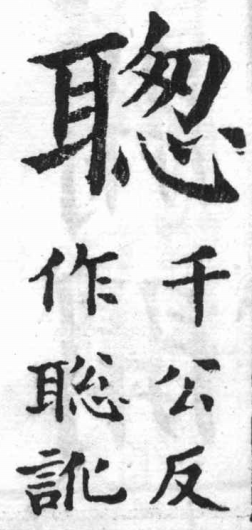 聦
千公反
作聡訛